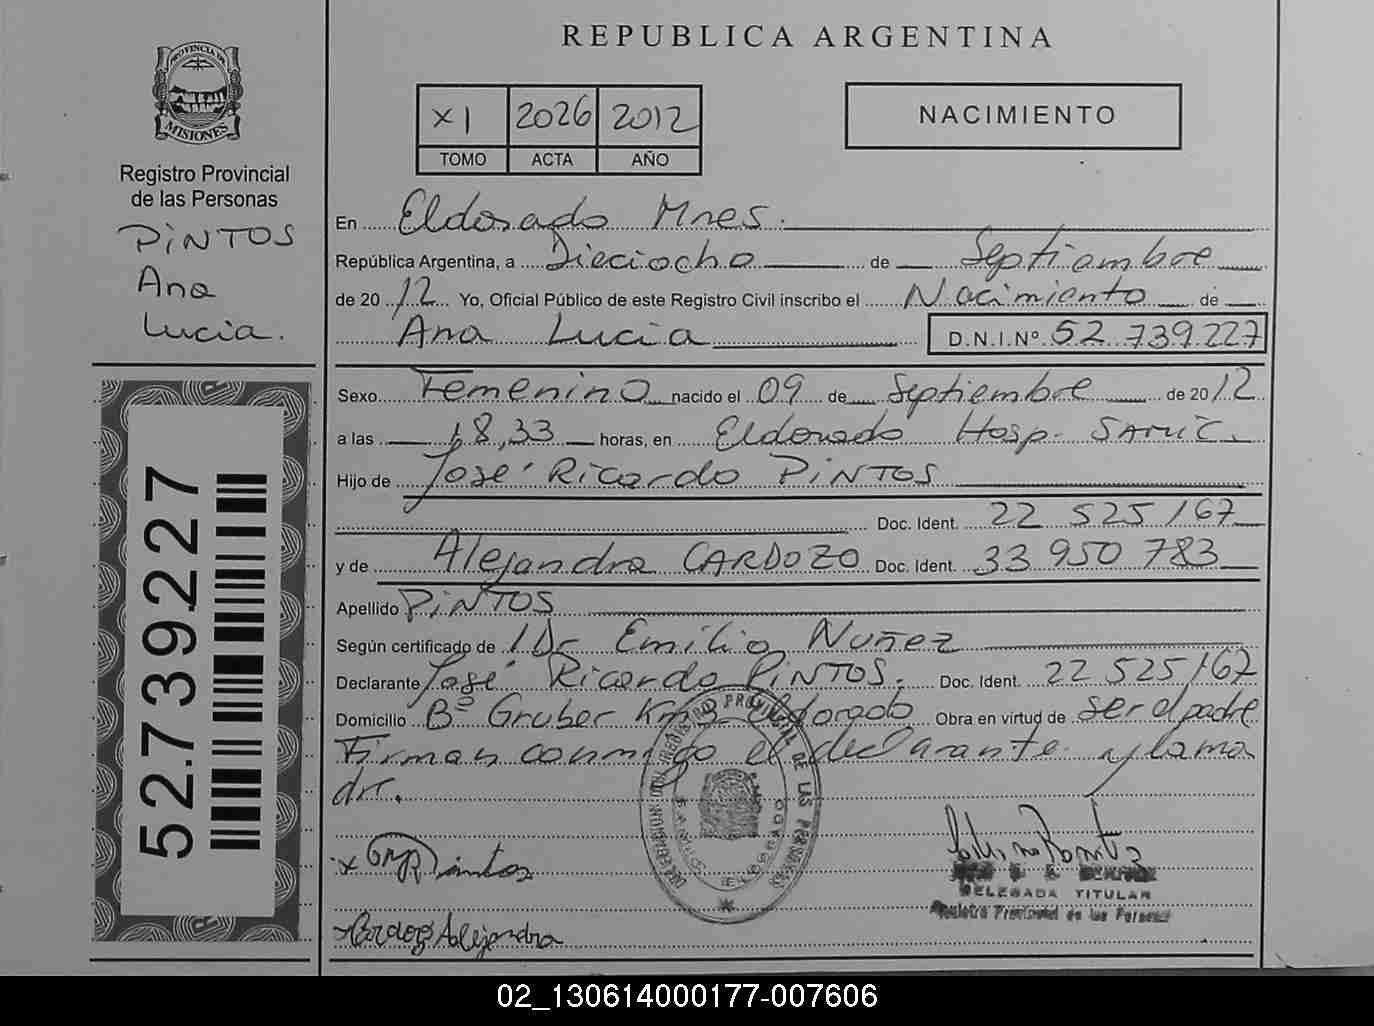 REPUBLICA ARGENTINA
PROVINCIA DE
MISIONES
Registro Provincial
de las Personas
PiNTOS
Ana
Lucia.
52739227
XI 2026 2012
TOMO ACTA AÑO
NACIMIENTO
En Eldorado Mnes.
República Argentina, a Dieciocho de Septiembre
de 2012 Yo, Oficial Público de este Registro Civil inscribo el Nacimiento de
Ana Lucia D.N.I.Nº 52.739.227
Sexo Femenino nacido el 09 de Septiembre de 2012
a las 18,33 horas, en Eldorado Hosp. SAMIC.
Hijo de José Ricardo PiNTOS
Doc. Ident. 22 525 167
y de Alejandra CARDOZO Doc. Ident. 33 950 783
Apellido PiNTOS
Según certificado de Dr Emilio Nuñez
Declarante José Ricardo PiNTOS. Doc. Ident. 22 525 167
Domicilio Bº Gruber Km 3 Eldorado Obra en virtud de ser el padre
Firman conmigo el declarante y la ma
dre.
REGISTRO PROVINCIAL DE LAS PERSONAS
ELDORADO
Pintos
Cardozo Alejandra
DELEGADA TITULAR
Registro Provincial de las Personas
02_130614000177-007606